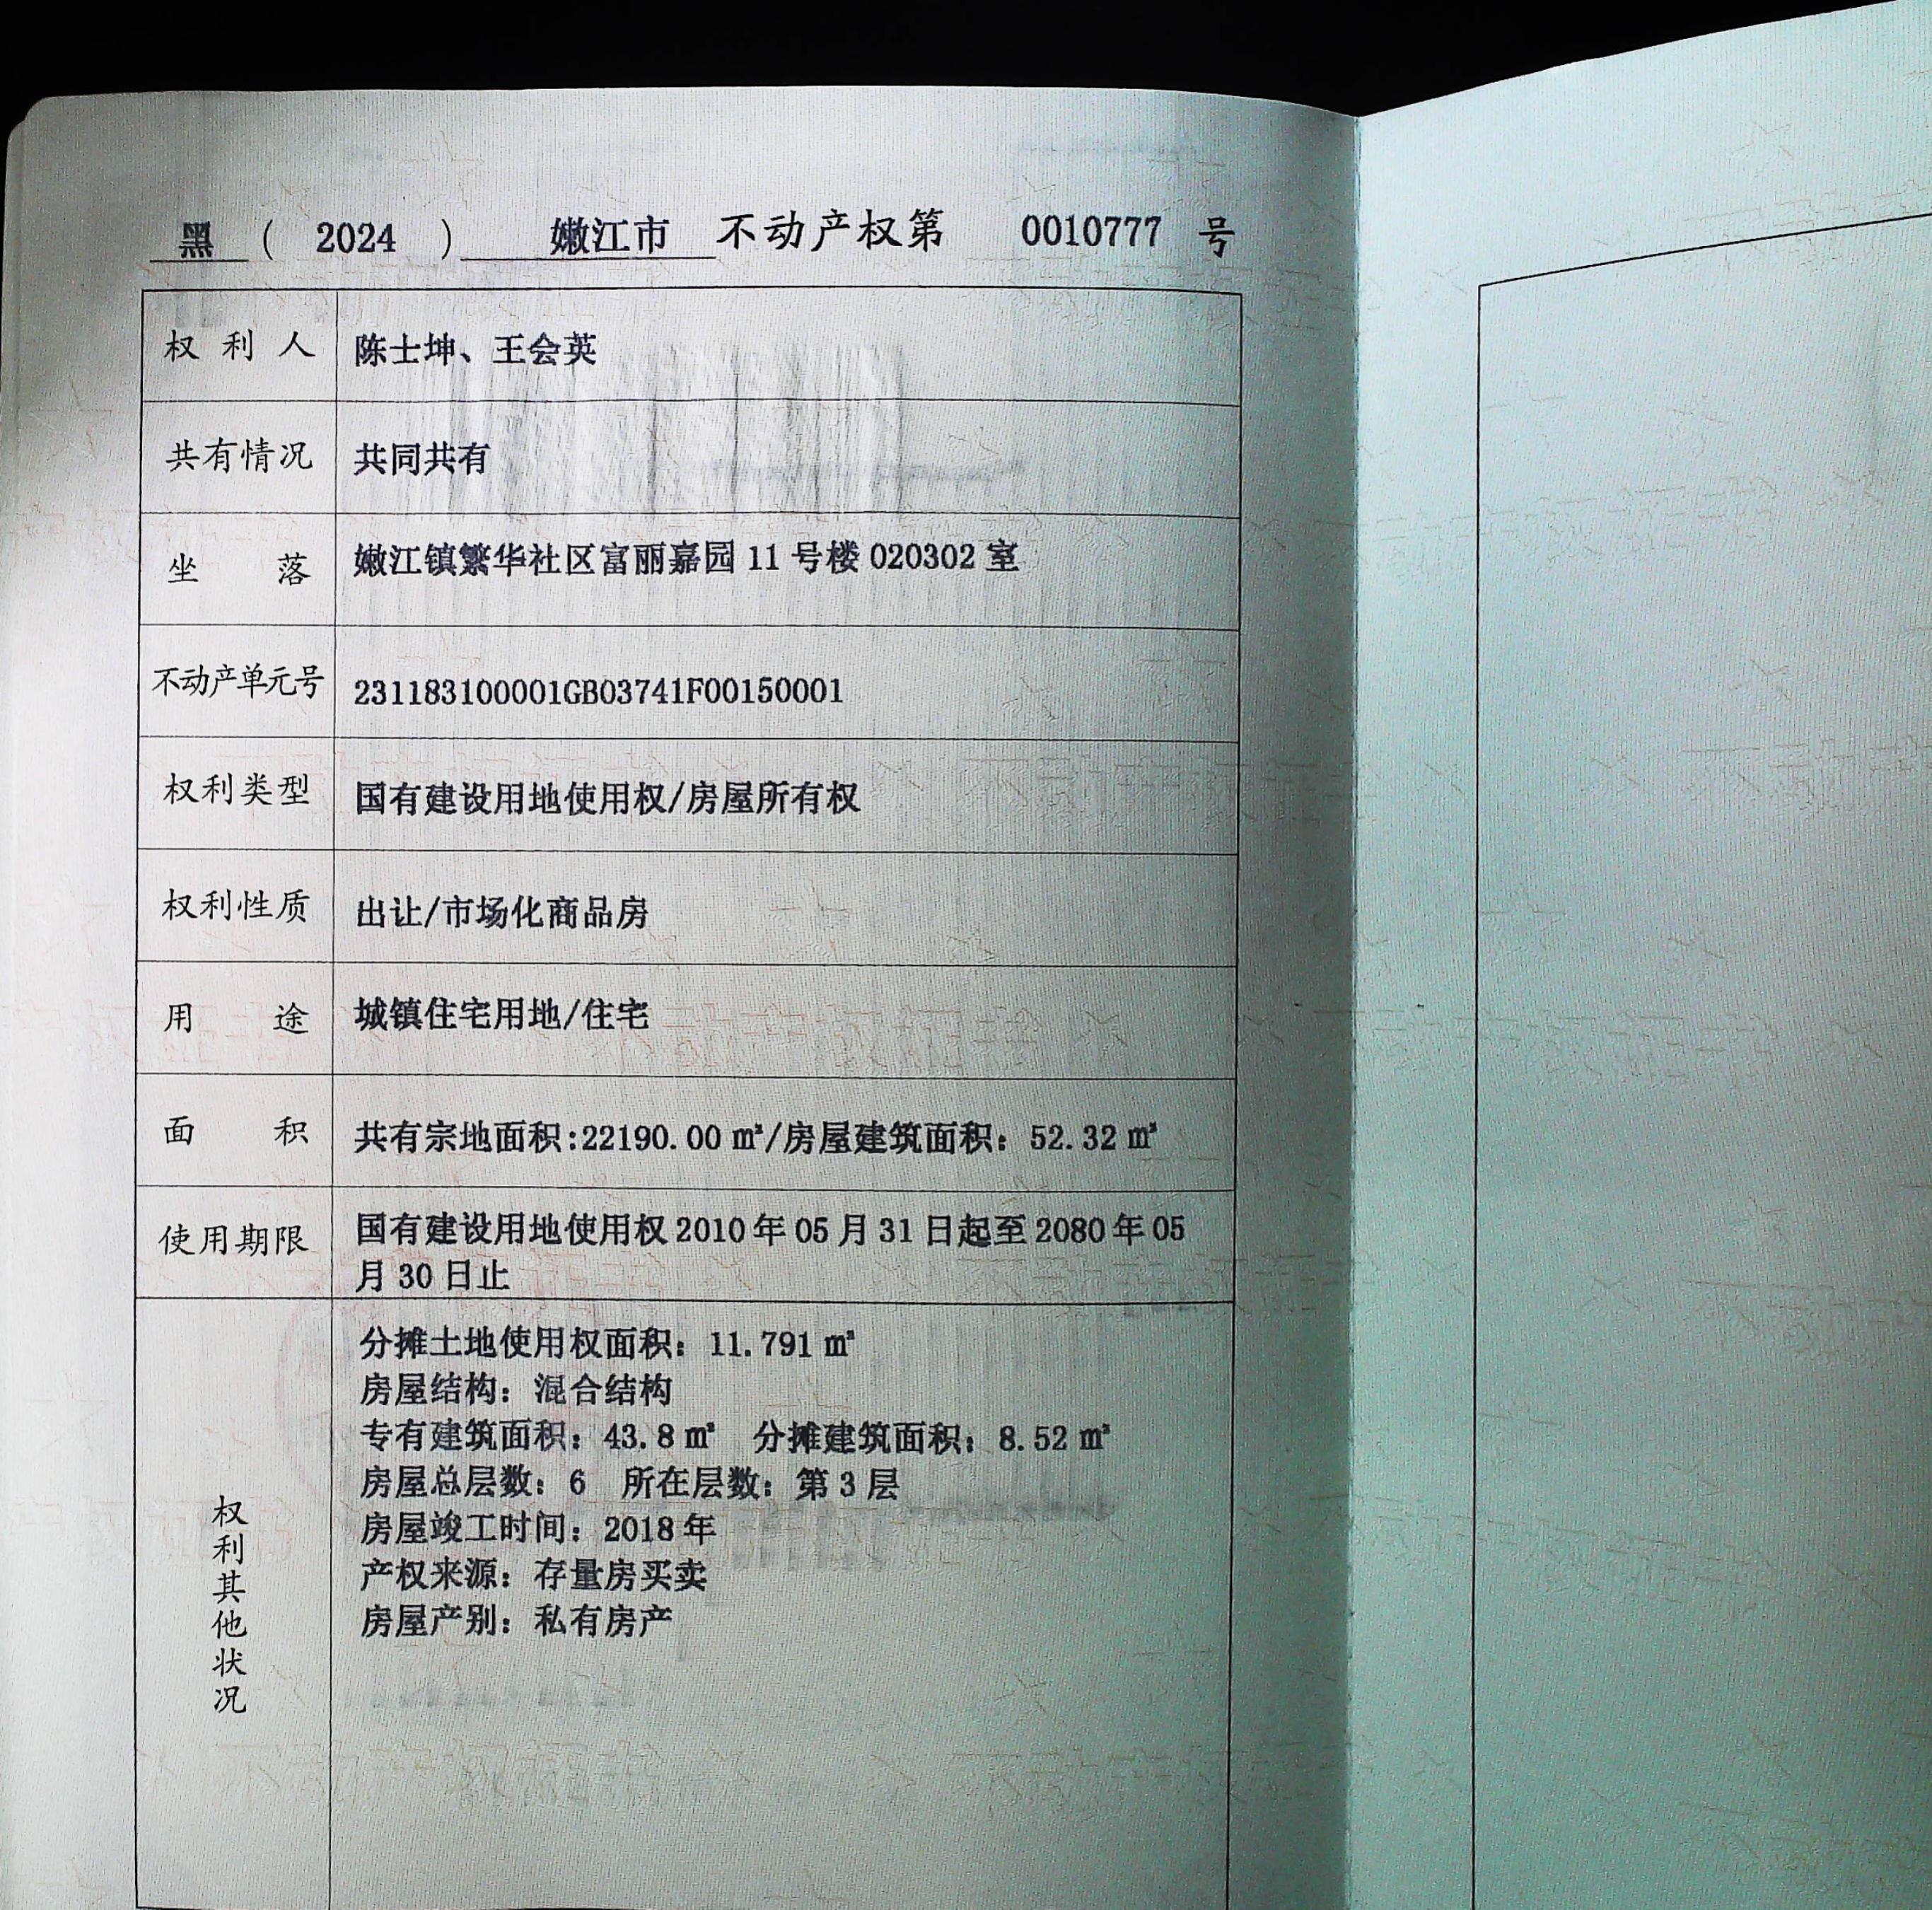 黑 ( 2024 ) 嫩江市 不动产权第 0010777 号
权利人 陈士坤、王会英
共有情况 共同共有
坐落 嫩江镇繁华社区富丽嘉园 11 号楼 020302 室
不动产单元号 231183100001GB03741F00150001
权利类型 国有建设用地使用权/房屋所有权
权利性质 出让/市场化商品房
用途 城镇住宅用地/住宅
面积 共有宗地面积:22190.00 ㎡/房屋建筑面积：52.32 ㎡
使用期限 国有建设用地使用权 2010 年 05 月 31 日起至 2080 年 05
月 30 日止
权利其他状况
分摊土地使用权面积：11.791 ㎡
房屋结构：混合结构
专有建筑面积：43.8 ㎡ 分摊建筑面积：8.52 ㎡
房屋总层数：6 所在层数：第 3 层
房屋竣工时间：2018 年
产权来源：存量房买卖
房屋产别：私有房产